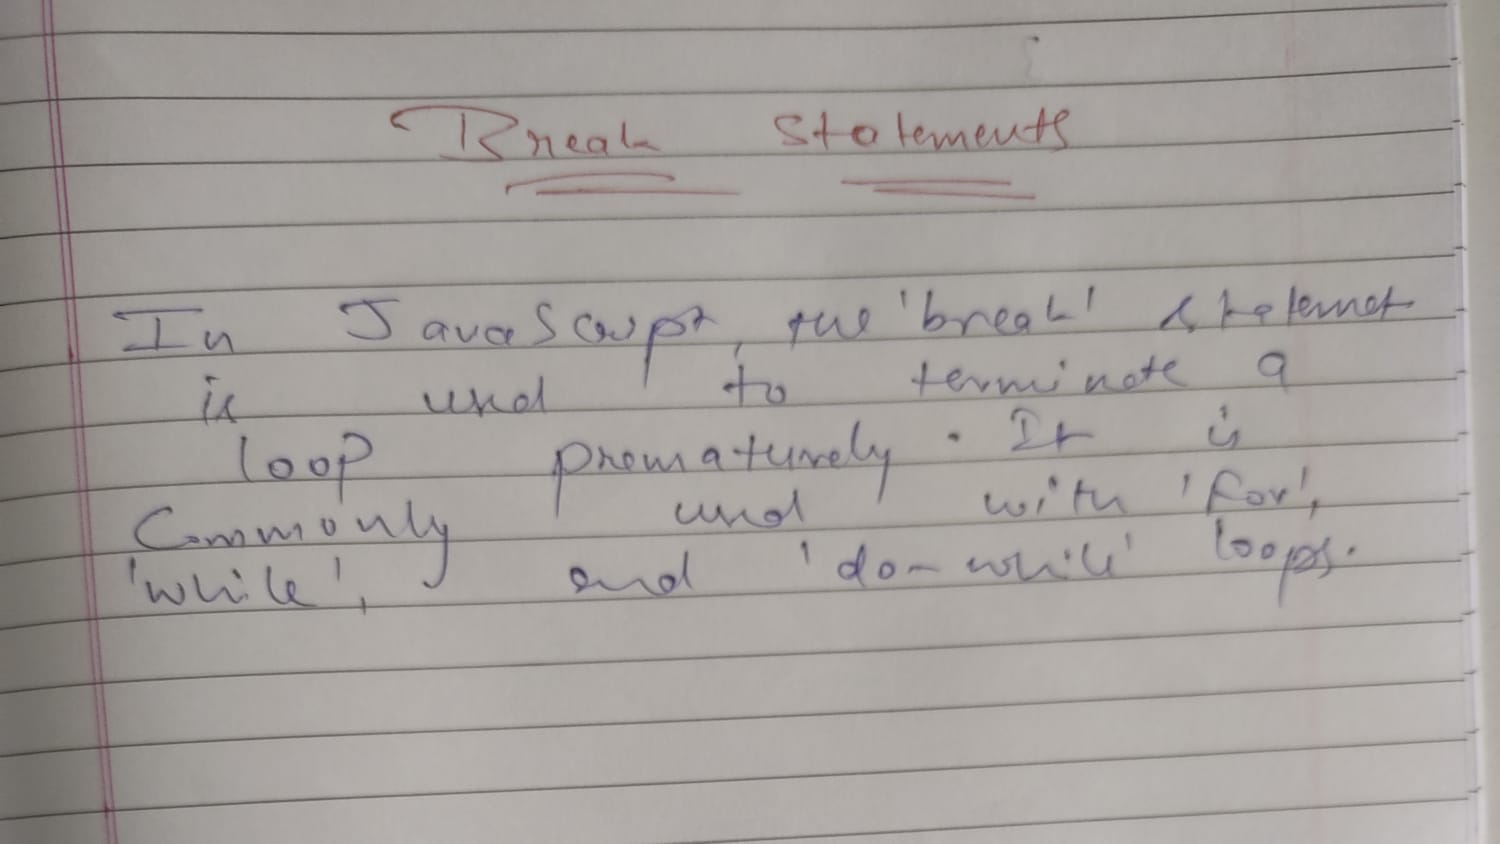 Break Statements
In JavaScript, the 'break' statement
is used to terminate a
loop prematurely. It is
Commonly used with 'for',
'while', and 'do-while' loops.